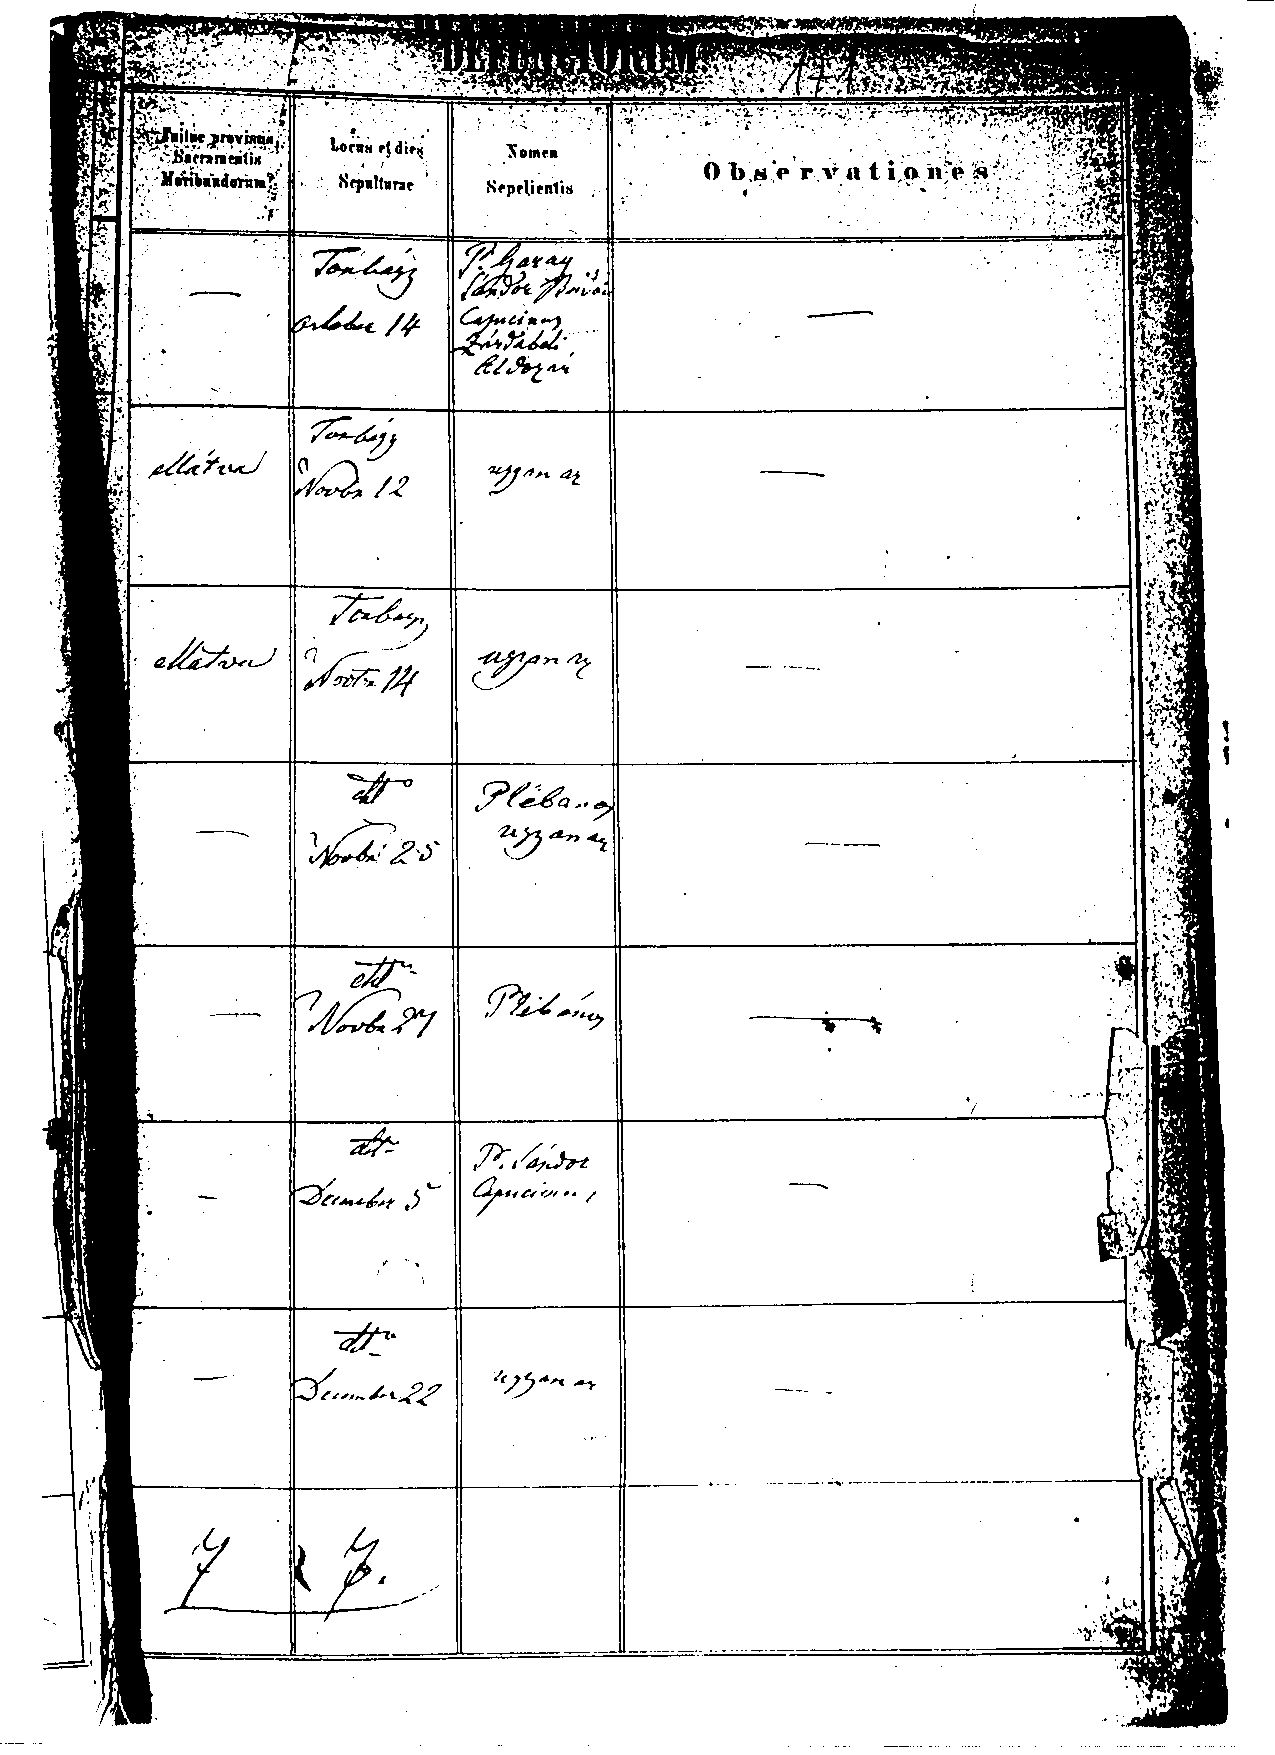 DEFUNCTORUM
Fuitne provisus
Sacramentis
Moribundorum?
Locus et dies
Sepulturae
Nomen
Sepelientis
Observationes
—
Torbágy
october 14
P. Garay
Sándor
Capucinus
Zárdabeli
Áldozár
—
ellátva
Torbágy
Novbr 12
ugyan az
—
ellátva
Torbágy
Novbr 14
ugyan az
—
—
dtto
Novbr 25
Plébános
ugyan az
—
—
dtto
Novbr 27
Plébános
—
—
dtto
December 5
P. Sándor
Capucinus
—
—
dtto
December 22
ugyan az
—
7
7.